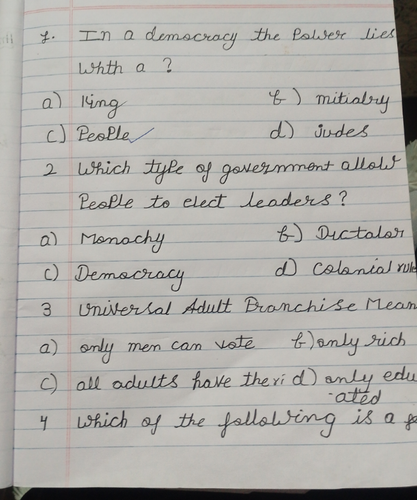 1. In a democracy the Power lies
Whth a ?
a) King b) mitialry
c) People d) judes
2 Which type of government allow
People to elect leaders ?
a) Monachy b) Dictator
c) Democracy d) Colonial rule
3 Universal Adult Branchise Mean
a) only men can vote b) only rich
c) all adults have the ri d) only edu
ated
4 Which of the following is a